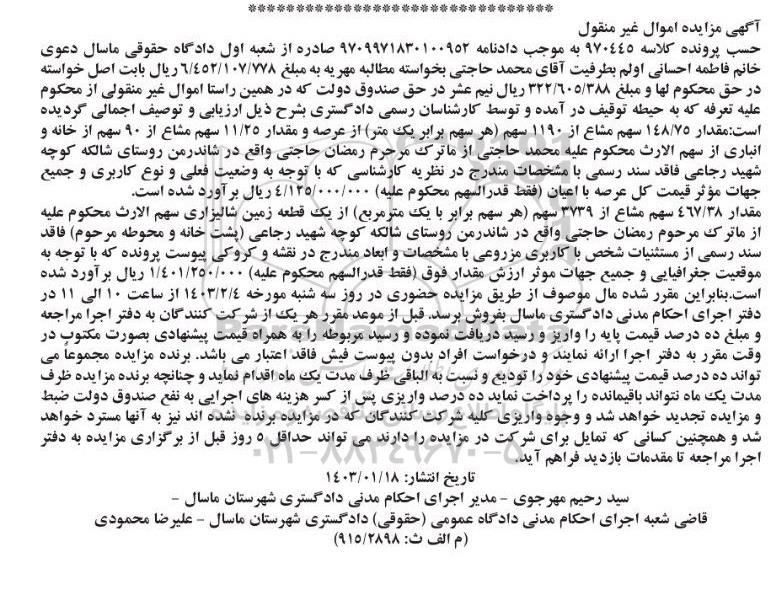 ********************************
آگهی مزایده اموال غیر منقول
حسب پرونده کلاسه ۹۷۰۴۴۵ به موجب دادنامه ۹۷۰۹۹۷۱۸۳۰۱۰۰۹۵۲ صادره از شعبه اول دادگاه حقوقی ماسال دعوی
خانم فاطمه احسانی اولم بطرفیت آقای محمد حاجتی بخواسته مطالبه مهریه به مبلغ ۶/۴۵۲/۱۰۷/۷۷۸ ریال بابت اصل خواسته
در حق محکوم لها و مبلغ ۳۲۲/۶۰۵/۳۸۸ ریال نیم عشر در حق صندوق دولت که در همین راستا اموال غیر منقولی از محکوم
علیه تعرفه که به حیطه توقیف در آمده و توسط کارشناسان رسمی دادگستری بشرح ذیل ارزیابی و توصیف اجمالی گردیده
است:مقدار ۱۴۸/۷۵ سهم مشاع از ۱۱۹۰ سهم (هر سهم برابر یک متر) از عرصه و مقدار ۱۱/۲۵ سهم مشاع از ۹۰ سهم از خانه و
انباری از سهم الارث محکوم علیه محمد حاجتی از ماترک مرحرم رمضان حاجتی واقع در شاندرمن روستای شالکه کوچه
شهید رجاعی فاقد سند رسمی با مشخصات مندرج در نظریه کارشناسی که با توجه به وضعیت فعلی و نوع کاربری و جمیع
جهات مؤثر قیمت کل عرصه با اعیان (فقط قدرالسهم محکوم علیه) ۴/۱۲۵/۰۰۰/۰۰۰ ریال برآورد شده است.
مقدار ۴۶۷/۳۸ سهم مشاع از ۳۷۳۹ سهم (هر سهم برابر با یک مترمربع) از یک قطعه زمین شالیزاری سهم الارث محکوم علیه
از ماترک مرحوم رمضان حاجتی واقع در شاندرمن روستای شالکه کوچه شهید رجاعی (پشت خانه و محوطه مرحوم) فاقد
سند رسمی از مستثنیات شخص با کاربری مزروعی با مشخصات و ابعاد مندرج در نقشه و کروکی پیوست پرونده که با توجه به
موقعیت جغرافیایی و جمیع جهات موثر ارزش مقدار فوق (فقط قدرالسهم محکوم علیه) ۱/۴۰۱/۲۵۰/۰۰۰ ریال برآورد شده
است.بنابراین مقرر شده مال موصوف از طریق مزایده حضوری در روز سه شنبه مورخه ۱۴۰۳/۲/۴ از ساعت ۱۰ الی ۱۱ در
دفتر اجرای احکام مدنی دادگستری ماسال بفروش برسد. قبل از موعد مقرر هر یک از شرکت کنندگان به دفتر اجرا مراجعه
و مبلغ ده درصد قیمت پایه را واریز و رسید دریافت نموده و رسید مربوطه را به همراه قیمت پیشنهادی بصورت مکتوب در
وقت مقرر به دفتر اجرا ارائه نمایند و درخواست افراد بدون پیوست فیش فاقد اعتبار می باشد. برنده مزایده مجموعاً می
تواند ده درصد قیمت پیشنهادی خود را تودیع و نسبت به الباقی ظرف مدت یک ماه اقدام نماید و چنانچه برنده مزایده ظرف
مدت یک ماه نتواند باقیمانده را پرداخت نماید ده درصد واریزی پس از کسر هزینه های اجرایی به نفع صندوق دولت ضبط
و مزایده تجدید خواهد شد و وجوه واریزی کلیه شرکت کنندگان که در مزایده برنده نشده اند نیز به آنها مسترد خواهد
شد و همچنین کسانی که تمایل برای شرکت در مزایده را دارند می تواند حداقل ۵ روز قبل از برگزاری مزایده به دفتر
اجرا مراجعه تا مقدمات بازدید فراهم آید.
تاریخ انتشار: ۱۴۰۳/۰۱/۱۸
سید رحیم مهرجوی - مدیر اجرای احکام مدنی دادگستری شهرستان ماسال -
قاضی شعبه اجرای احکام مدنی دادگاه عمومی (حقوقی) دادگستری شهرستان ماسال - علیرضا محمودی
(م الف ث: ۹۱۵/۲۸۹۸)
ParsNamadData
۰۲۱-۸۸۳۴۹۶۷۰-۵